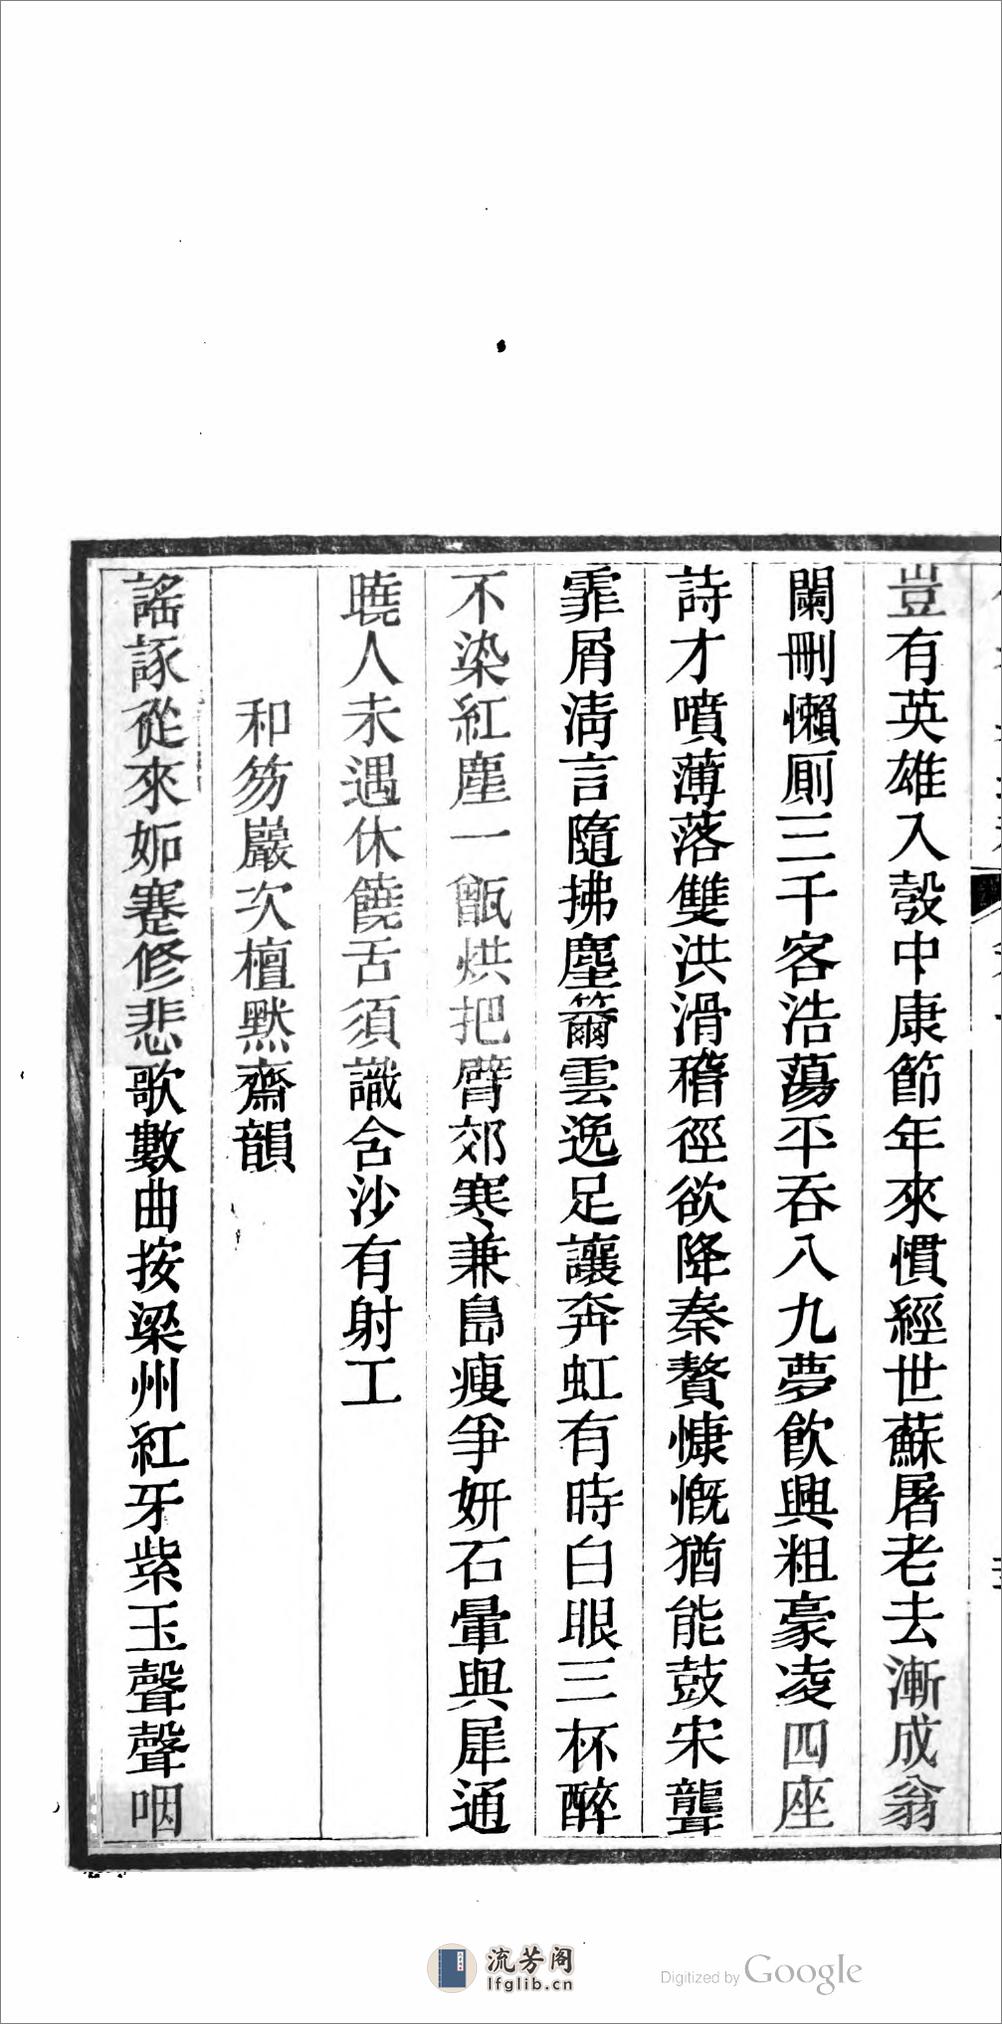 豈有英雄入彀中康節年來慣經世蘇屠老去漸成翁
闌刪懶廁三千客浩蕩平吞八九夢飲興粗豪凌四座
詩才噴薄落雙洪滑稽徑欲降秦贅慷慨猶能鼓宋聾
霏屑清言隨拂塵籋雲逸足讓奔虹有時白眼三杯醉
不染紅塵一甑烘把臂郊寒兼島瘦爭妍石暈與犀通
曉人未遇休饒舌須識含沙有射工
和笏巖次檀默齋韻
謠諑從來妬蹇修悲歌數曲按梁州紅牙紫玉聲聲咽
流芳阁
lfglib.cn
Digitized by Google